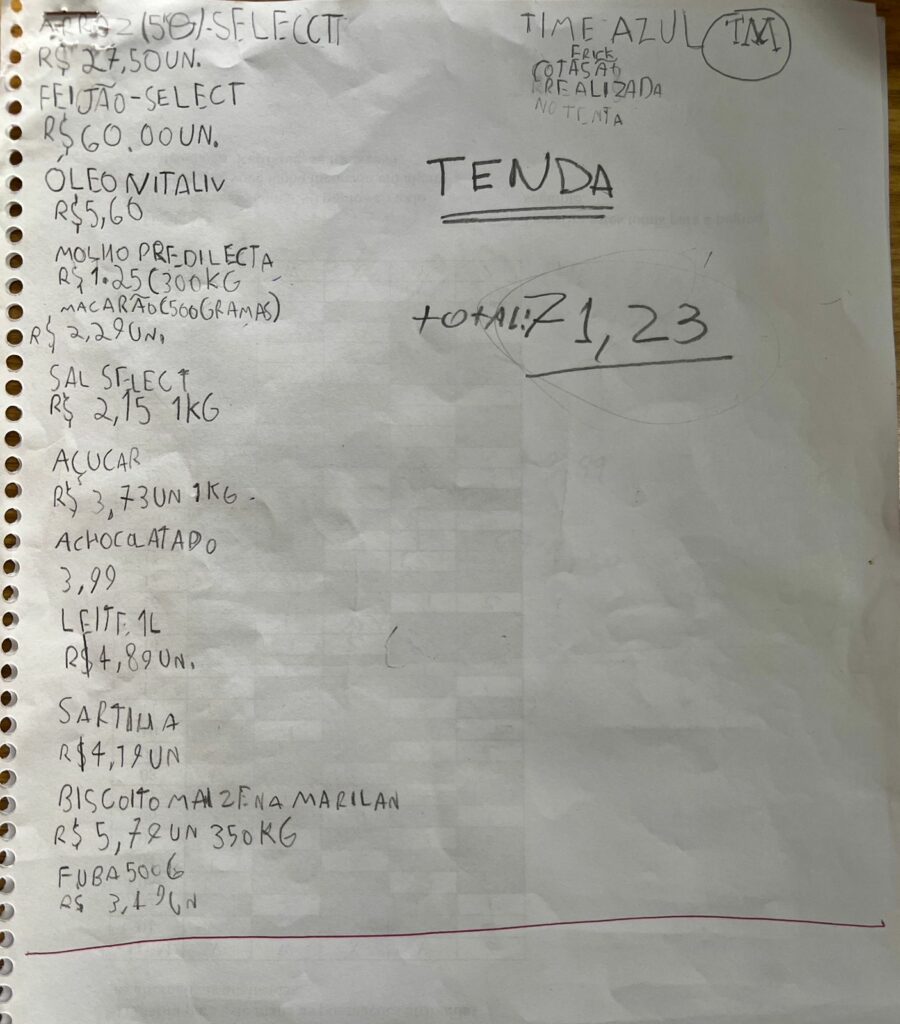 ARROZ (5G)-SELECCT
R$ 27,50UN.
FEIJÃO-SELECT
R$60.00UN.
ÓLEO VITALIV
R$5,60
MOLHO PREDILECTA
R$ 1.25(300KG
MACARÃO(500GRAMAS)
R$ 2,29UN.
SAL SELECT
R$ 2,15 1KG
AÇUCAR
R$ 3,73UN 1KG.
ACHOCLATADO
3,99
LEITE 1L
R$4,89UN.
SARTINHA
R$4,79UN
BISCOITO MAIZENA MARILAN
R$ 5,79UN 350KG
FUBA 500G
R$ 3,49UN
TIME AZUL TM
ERICK
COTASAO
RREALIZADA
NO TENTA
TENDA
TOTAL:71,23